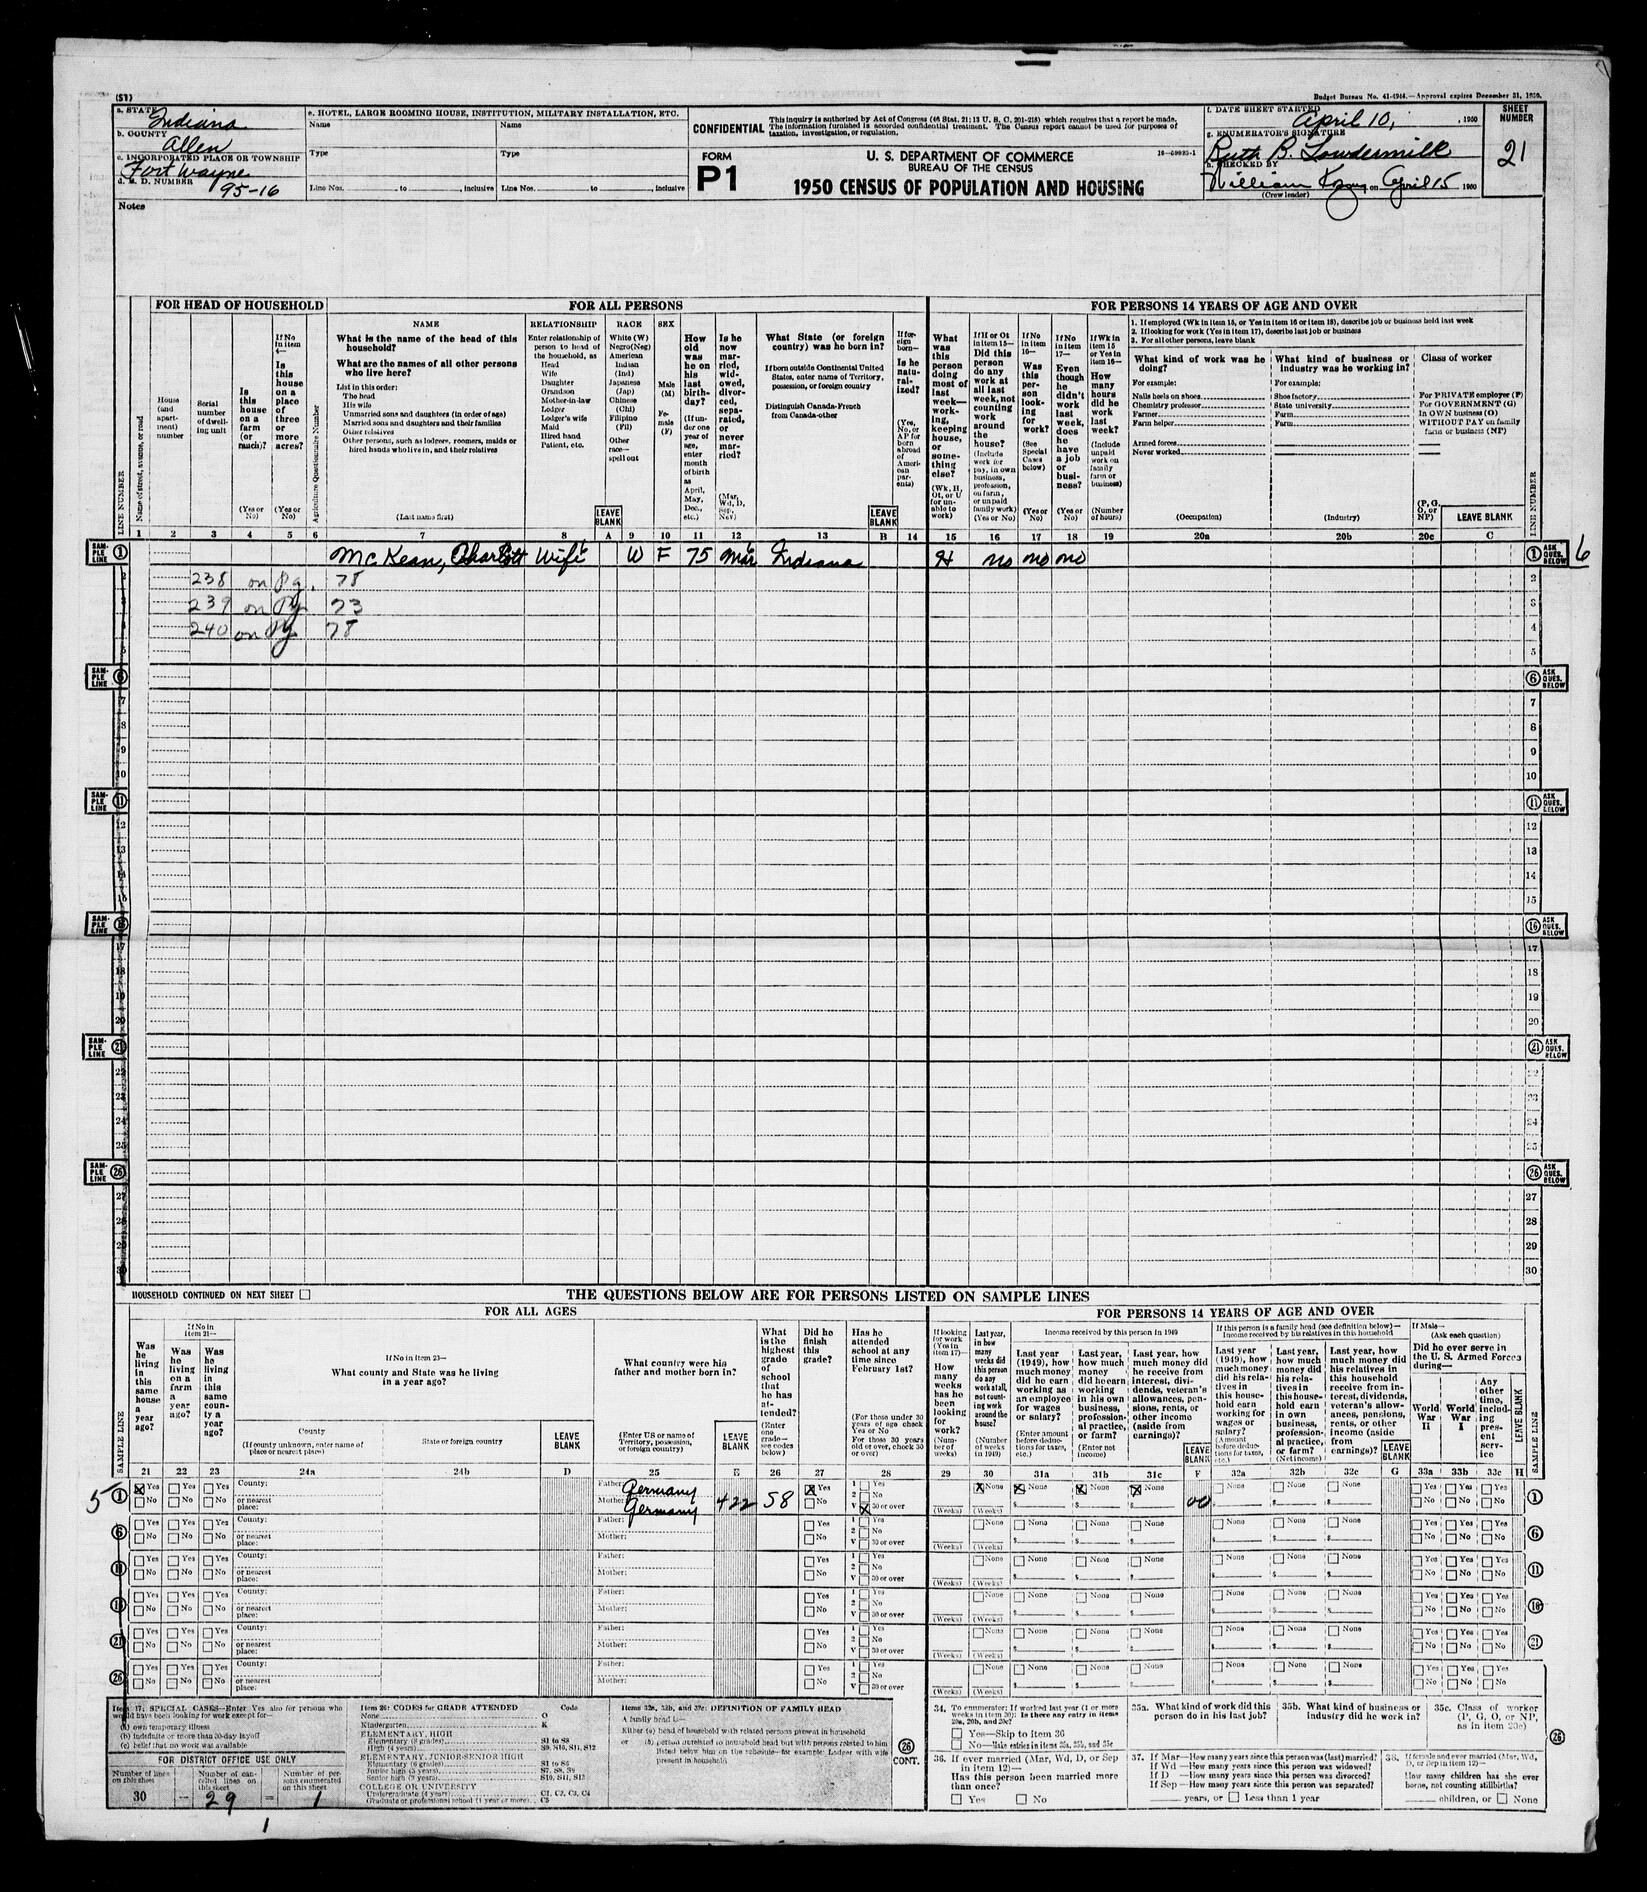 (51)
Budget Bureau No. 41-4944.—Approval expires December 31, 1950.
a. STATE Indiana
b. COUNTY Allen
c. INCORPORATED PLACE OR TOWNSHIP Fort Wayne
d. E. D. NUMBER 95-16
e. HOTEL, LARGE ROOMING HOUSE, INSTITUTION, MILITARY INSTALLATION, ETC.
Name Name
Type Type
Line Nos. to , inclusive Line Nos. to , inclusive
CONFIDENTIAL
This inquiry is authorized by Act of Congress (46 Stat. 21; 13 U. S. C. 201-218) which requires that a report be made. The information furnished is accorded confidential treatment. The Census report cannot be used for purposes of taxation, investigation, or regulation.
FORM P1
U. S. DEPARTMENT OF COMMERCE
BUREAU OF THE CENSUS
1950 CENSUS OF POPULATION AND HOUSING
f. DATE SHEET STARTED April 10, , 1950
g. ENUMERATOR'S SIGNATURE Ruth B. Lowdermilk
h. CHECKED BY William on April 15 1950
(Crew leader)
SHEET NUMBER 21
Notes
FOR HEAD OF HOUSEHOLD FOR ALL PERSONS FOR PERSONS 14 YEARS OF AGE AND OVER
LINE NUMBER
Name of street, avenue, or road
House (and apartment) number
Serial number of dwelling unit
Is this house on a farm (or ranch)? (Yes or No)
If No in item 4— Is this house on a place of three or more acres? (Yes or No)
Agriculture Questionnaire Number
NAME
What is the name of the head of this household?
What are the names of all other persons who live here?
List in this order:
The head
His wife
Unmarried sons and daughters (in order of age)
Married sons and daughters and their families
Other relatives
Other persons, such as lodgers, roomers, maids or hired hands who live in, and their relatives
(Last name first)
RELATIONSHIP
Enter relationship of person to head of the household, as
Head
Wife
Daughter
Grandson
Mother-in-law
Lodger
Lodger's wife
Maid
Hired hand
Patient, etc.
LEAVE BLANK
RACE
White (W)
Negro(Neg)
American Indian (Ind)
Japanese (Jap)
Chinese (Chi)
Filipino (Fil)
Other race—spell out
SEX
Male (M)
Female (F)
How old was he on his last birthday?
(If under one year of age, enter month of birth as April, May, Dec., etc.)
Is he now married, widowed, divorced, separated, or never married?
(Mar, Wd, D, Sep, Nev)
What State (or foreign country) was he born in?
If born outside Continental United States, enter name of Territory, possession, or foreign country
Distinguish Canada-French from Canada-other
LEAVE BLANK
If foreign born— Is he naturalized?
(Yes, No, or AP for born abroad of American parents)
What was this person doing most of last week—working, keeping house, or something else?
(Wk, H, Ot, or U for unable to work)
If H or Ot in item 15— Did this person do any work at all last week, not counting work around the house?
(Include work for pay, in own business, profession, on farm, or unpaid family work)
(Yes or No)
If No in item 16— Was this person looking for work?
(See Special Cases below)
(Yes or No)
If No in item 17— Even though he didn't work last week, does he have a job or business?
(Yes or No)
If Wk in item 15 or Yes in item 16— How many hours did he work last week?
(Include unpaid work on family farm or business)
(Number of hours)
1. If employed (Wk in item 15, or Yes in item 16 or item 18), describe job or business held last week
2. If looking for work (Yes in item 17), describe last job or business
3. For all other persons, leave blank
What kind of work was he doing?
For example:
Nails heels on shoes
Chemistry professor
Farmer
Farm helper
Armed forces
Never worked
(Occupation)
What kind of business or industry was he working in?
For example:
Shoe factory
State university
Farm
Farm
(Industry)
Class of worker
For PRIVATE employer (P)
For GOVERNMENT (G)
In OWN business (O)
WITHOUT PAY on family farm or business (NP)
(P, G, O, or NP)
LEAVE BLANK
1 2 3 4 5 6 7 8 A 9 10 11 12 13 B 14 15 16 17 18 19 20a 20b 20c C
SAMPLE LINE 1 McKean, Charlott Wife W F 75 Mar Indiana H no no no 1 ASK QUES. BELOW 6
2 238 on Pg. 78 2
3 239 on Pg 73 3
4 240 on Pg 78 4
5 5
SAMPLE LINE 6 6 ASK QUES. BELOW
7 7
8 8
9 9
10 10
SAMPLE LINE 11 11 ASK QUES. BELOW
12 12
13 13
14 14
15 15
SAMPLE LINE 16 16 ASK QUES. BELOW
17 17
18 18
19 19
20 20
SAMPLE LINE 21 21 ASK QUES. BELOW
22 22
23 23
24 24
25 25
SAMPLE LINE 26 26 ASK QUES. BELOW
27 27
28 28
29 29
30 30
HOUSEHOLD CONTINUED ON NEXT SHEET
THE QUESTIONS BELOW ARE FOR PERSONS LISTED ON SAMPLE LINES
FOR ALL AGES FOR PERSONS 14 YEARS OF AGE AND OVER
SAMPLE LINE
Was he living in this same house a year ago?
If No in item 21—
Was he living on a farm a year ago?
Was he living in this same county a year ago?
If No in item 23—
What county and State was he living in a year ago?
County
(If county unknown, enter name of place or nearest place)
State or foreign country
LEAVE BLANK
What country were his father and mother born in?
(Enter US or name of Territory, possession, or foreign country)
LEAVE BLANK
What is the highest grade of school that he has attended?
(Enter one grade—see codes below)
Did he finish this grade?
Has he attended school at any time since February 1st?
(For those under 30 years of age check Yes or No
For those 30 years old or over, check 30 or over)
If looking for work (Yes in item 17)—
How many weeks has he been looking for work?
(Number of weeks)
Last year, in how many weeks did this person do any work at all, not counting work around the house?
(Number of weeks in 1949)
Income received by this person in 1949
Last year (1949), how much money did he earn working as an employee for wages or salary?
(Enter amount before deductions for taxes, etc.)
Last year, how much money did he earn working in his own business, professional practice, or farm?
(Enter net income)
Last year, how much money did he receive from interest, dividends, veteran's allowances, pensions, rents, or other income (aside from earnings)?
LEAVE BLANK
If this person is a family head (see definition below)—
Income received by his relatives in this household
Last year (1949), how much money did his relatives in this household earn working for wages or salary?
(Amount before deductions for taxes, etc.)
Last year, how much money did his relatives in this household earn in own business, professional practice, or farm?
(Net income)
Last year, how much money did his relatives in this household receive from interest, dividends, veteran's allowances, pensions, rents, or other income (aside from earnings)?
LEAVE BLANK
If Male—
(Ask each question)
Did he ever serve in the U. S. Armed Forces during—
World War II
World War I
Any other time, including present service
LEAVE BLANK
SAMPLE LINE
21 22 23 24a 24b D 25 E 26 27 28 29 30 31a 31b 31c F 32a 32b 32c G 33a 33b 33c H
5 1 X Yes No Yes No Yes No County: or nearest place: Father: Germany Mother: Germany 422 S8 X Yes No 1 Yes 2 No V X 30 or over (Weeks) X None (Weeks) X None X None X None 00 None None None Yes No Yes No Yes No 1
6 Yes No Yes No Yes No County: or nearest place: Father: Mother: Yes No 1 Yes 2 No V 30 or over (Weeks) None (Weeks) None None None None None None Yes No Yes No Yes No 6
11 Yes No Yes No Yes No County: or nearest place: Father: Mother: Yes No 1 Yes 2 No V 30 or over (Weeks) None (Weeks) None None None None None None Yes No Yes No Yes No 11
16 Yes No Yes No Yes No County: or nearest place: Father: Mother: Yes No 1 Yes 2 No V 30 or over (Weeks) None (Weeks) None None None None None None Yes No Yes No Yes No 16
21 Yes No Yes No Yes No County: or nearest place: Father: Mother: Yes No 1 Yes 2 No V 30 or over (Weeks) None (Weeks) None None None None None None Yes No Yes No Yes No 21
26 Yes No Yes No Yes No County: or nearest place: Father: Mother: Yes No 1 Yes 2 No V 30 or over None (Weeks) None None None None None None Yes No Yes No Yes No
Item 17: SPECIAL CASES—Enter Yes also for persons who would have been looking for work except for—
(a) own temporary illness
(b) indefinite or more than 30-day layoff
(c) belief that no work was available
FOR DISTRICT OFFICE USE ONLY
Number of lines on this sheet Number of cancelled lines on this sheet Number of persons enumerated on this sheet
30 — 29 = 1
1
Item 26: CODES for GRADE ATTENDED Code
None O
Kindergarten K
ELEMENTARY, HIGH
Elementary (8 grades) S1 to S8
High (4 years) S9, S10, S11, S12
ELEMENTARY, JUNIOR-SENIOR HIGH
Elementary (6 grades) S1 to S6
Junior high (3 years) S7, S8, S9
Senior high (3 years) S10, S11, S12
COLLEGE OR UNIVERSITY
Undergraduate (4 years) C1, C2, C3, C4
Graduate or professional school (1 year or more) C5
Items 32a, 32b, and 32c: DEFINITION OF FAMILY HEAD
A family head is—
Either (a) head of household with related persons present in household
or (b) person unrelated to household head but with persons related to him listed below him on the schedule—for example: Lodger with wife present in household
26 CONT.
34. To enumerator: If worked last year (1 or more weeks in item 30): Is there any entry in items 20a, 20b, and 20c?
Yes—Skip to item 36
No—Make entries in items 35a, 35b, and 35c
35a. What kind of work did this person do in his last job?
35b. What kind of business or industry did he work in?
35c. Class of worker (P, G, O, or NP, as in item 20c)
36. If ever married (Mar, Wd, D, or Sep in item 12)—
Has this person been married more than once?
Yes No
37. If Mar—How many years since this person was (last) married?
If Wd—How many years since this person was widowed?
If D—How many years since this person was divorced?
If Sep—How many years since this person was separated?
years, or Less than 1 year
38. If female and ever married (Mar, Wd, D, or Sep in item 12)—
How many children has she ever borne, not counting stillbirths?
children, or None
26